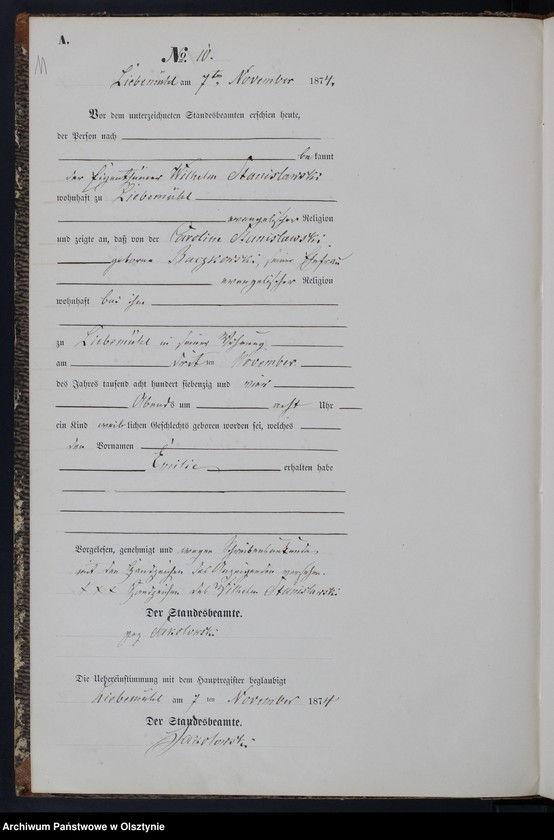 A.
11
No. 10.
Liebemühl am 7ten November 1874.
Vor dem unterzeichneten Standesbeamten erschien heute,
der Person nach
bekannt
der Eigenthümer Wilhelm Stanislawski
wohnhaft zu Liebemühl
evangelischer Religion
und zeigte an, daß von der Caroline Stanislawski
geborne, seiner Ehefrau
evangelischer Religion
wohnhaft bei ihm
zu Liebemühl in seiner Wohnung
am dritten November
des Jahres tausend acht hundert siebenzig und vier
Abends um acht Uhr
ein Kind weiblichen Geschlechts geboren worden sei, welches
den Vornamen
Emilie erhalten habe
Vorgelesen, genehmigt und wegen Schreibensunkunde
mit den Handzeichen des Anzeigenden versehen.
x x x Handzeichen des Wilhelm Stanislawski
Der Standesbeamte.
gez Sakolowski
Die Uebereinstimmung mit dem Hauptregister beglaubigt
Liebemühl am 7 ten November 1874
Der Standesbeamte.
Sakolowski
Archiwum Państwowe w Olsztynie